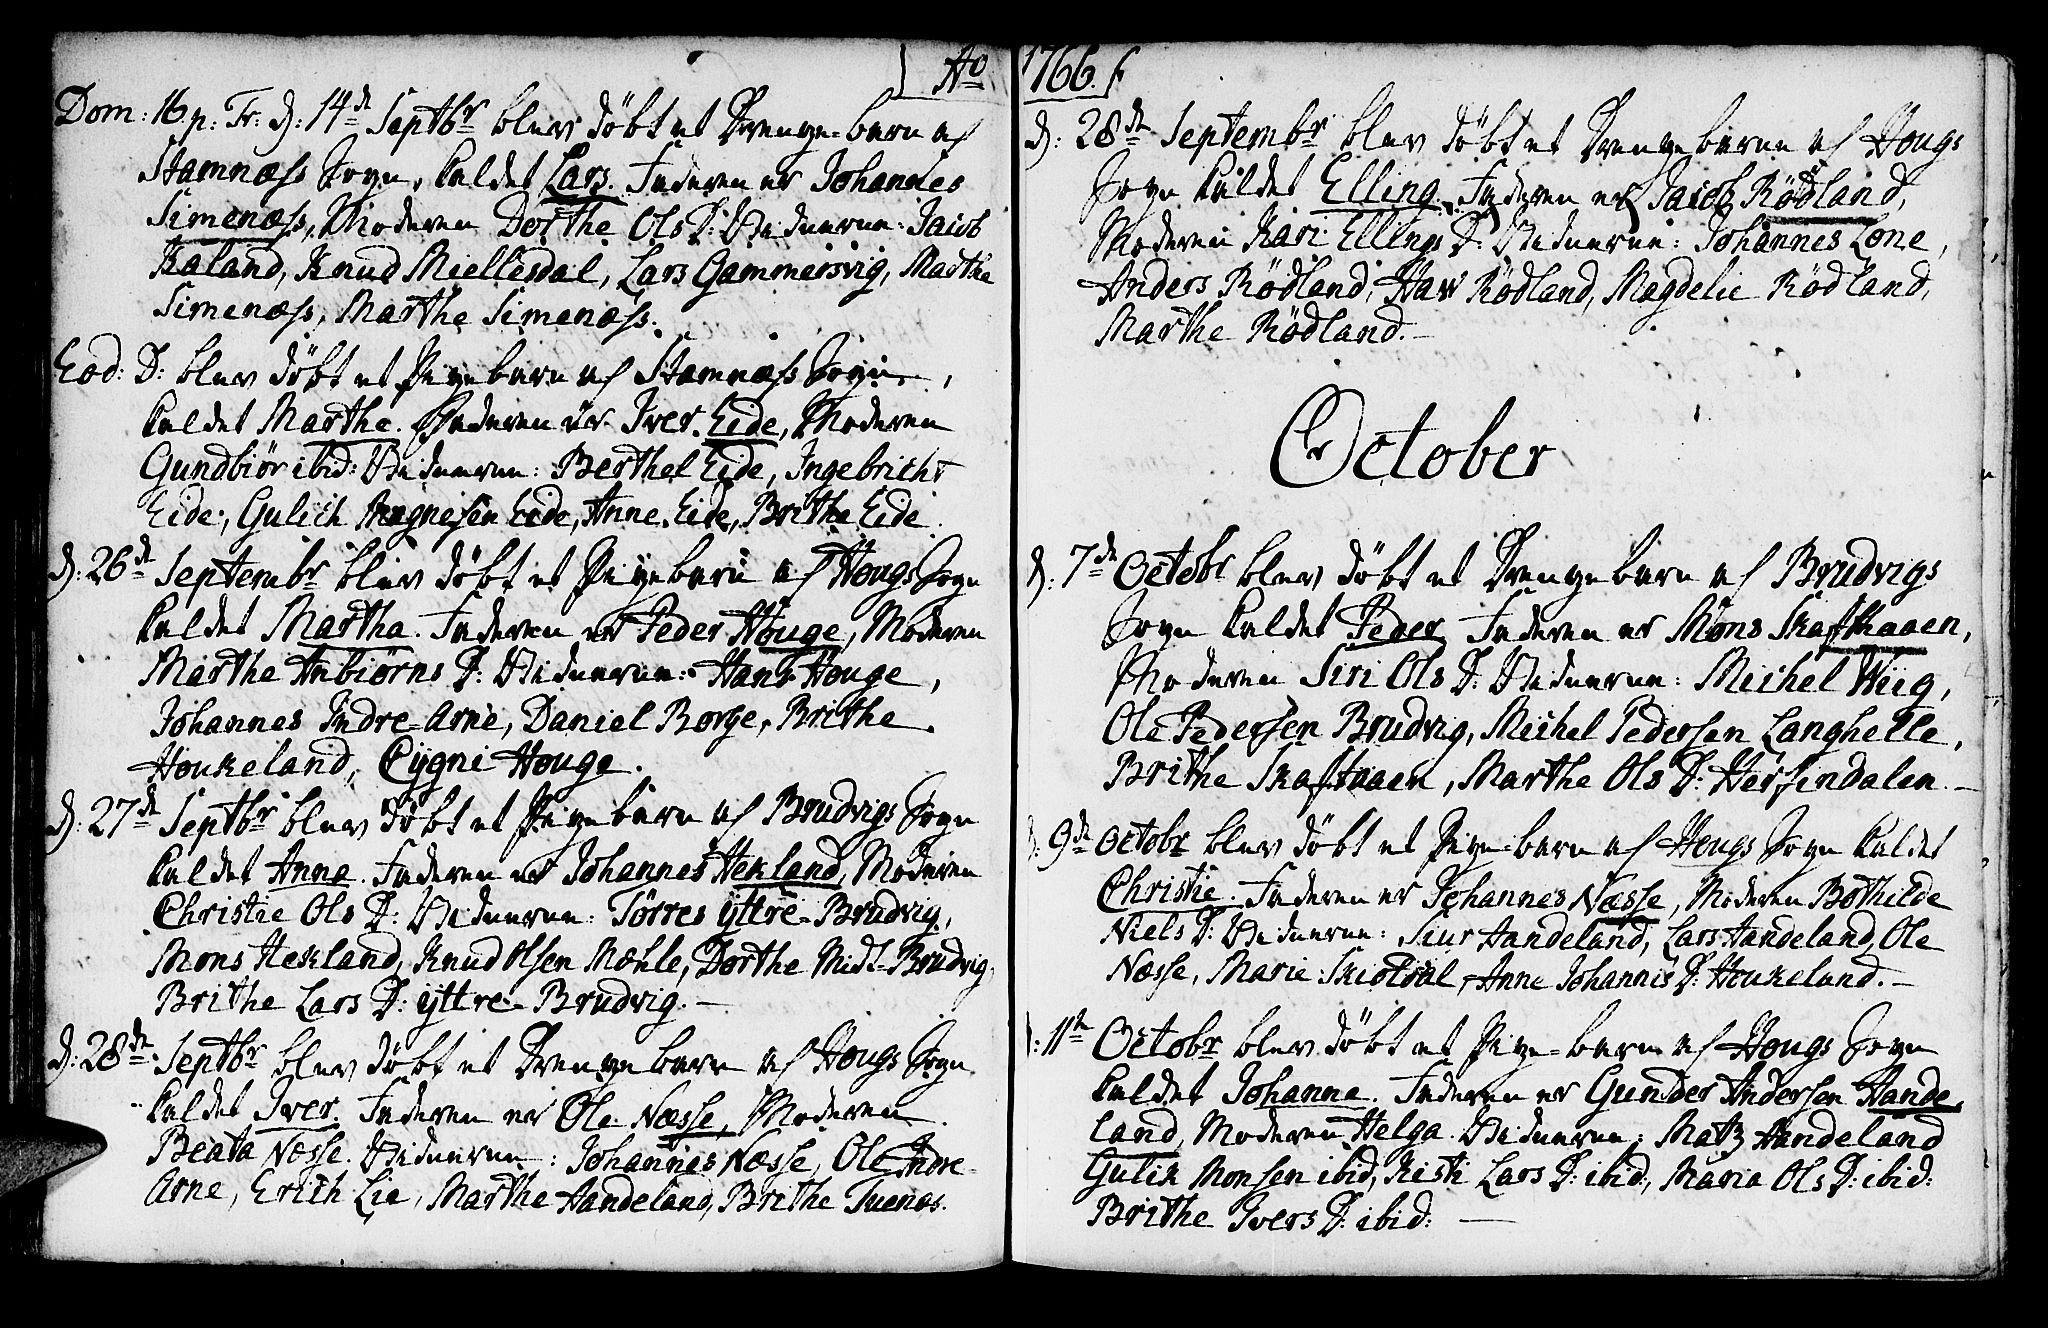 Ao
Dom: 16 p. Tr: D: 14de Septbr blev döbt et Drenge-barn af
Stamnæss Sogn, kaldet Lars. Faderen er Johannes
Simenæss, Moderen Dorthe Ols D: Vidnerne: Jacob
Kaland, Knud Miellesdal, Lars Gammersvig, Marthe
Simenæss, Marthe Simenæss.
Eod: D: blev döbt et Pigebarn af Stamnæss Sogn,
kaldet Marthe. Faderen er Iver Eide, Moderen
Gundbiör ibid: Vidnerne: Berthel Eide, Ingebricht
Eide, Gulich Magnesen Eide, Anne Eide, Brithe Eide.
D: 26de Septembr blev döbt et Pigebarn af Hougs Sogn
kaldet Martha. Faderen er Peder Houge, Moderen
Marthe Anbiörns D: Vidnerne: Hans Houge,
Johannes Indre-Arne, Daniel Borge, Brithe
Houkeland, Cygni Houge.
D: 27de Septbr blev döbt et Pigebarn af Brudvigs Sogn
kaldet Anna. Faderen er Johannes Hekland, Moderen
Christie Ols D: Vidnerne: Törres yttre-Brudvig,
Mons Hekland, Knud Olsen Mæhle, Dorthe Midt-Brudvig,
Brithe Lars D: yttre-Brudvig.-
D: 28de Septbr blev döbt et Drengebarn af Hougs Sogn
kaldet Iver. Faderen er Ole Næsse, Moderen
Beata Næsse. Vidnerne: Johannes Næsse, Ole Indre-
Arne, Erich Lie, Marthe Aandeland, Brithe Tuenæs.
1766.
D: 28de Septembr blev döbt et Drengebarn af Hougs
Sogn kaldet Elling. Faderen er Jacob Rödland,
Moderen Kari Ellings D: Vidnerne: Johannes Lone,
Anders Rödland, Rödland, Magdelie Rödland,
Marthe Rödland.-
October
D: 7de Octobr blev döbt et Drengebarn af Brudvigs
Sogn kaldet Peder. Faderen er Mons Skafthaaen,
Moderen Siri Ols D: Vidnerne: Michel Wiig,
Ole Pedersen Brudvig, Michel Pedersen Langhelle,
Brithe Skaftaaen, Marthe Ols D: Hersendalen.-
D: 9de Octobr blev döbt et Pige-barn af Hougs Sogn kaldet
Christie. Faderen er Johannes Næsse, Moderen Bothilde
Niels D: Vidnerne: Siur Aandeland, Lars Aandeland, Ole
Næsse, Marie Skiotdal, Anne Johannis D: Houkeland.-
D: 11te Octobr blev döbt et Pige-barn af Hougs Sogn
kaldet Johanne. Faderen er Gunder Andersen Aande-
land, Moderen Helga. Vidnerne: Matz Aandeland
Gulik Monsen ibid, Kisti Lars D: ibid:, Maria Ols D: ibid:
Brithe Ivers D: ibid: -